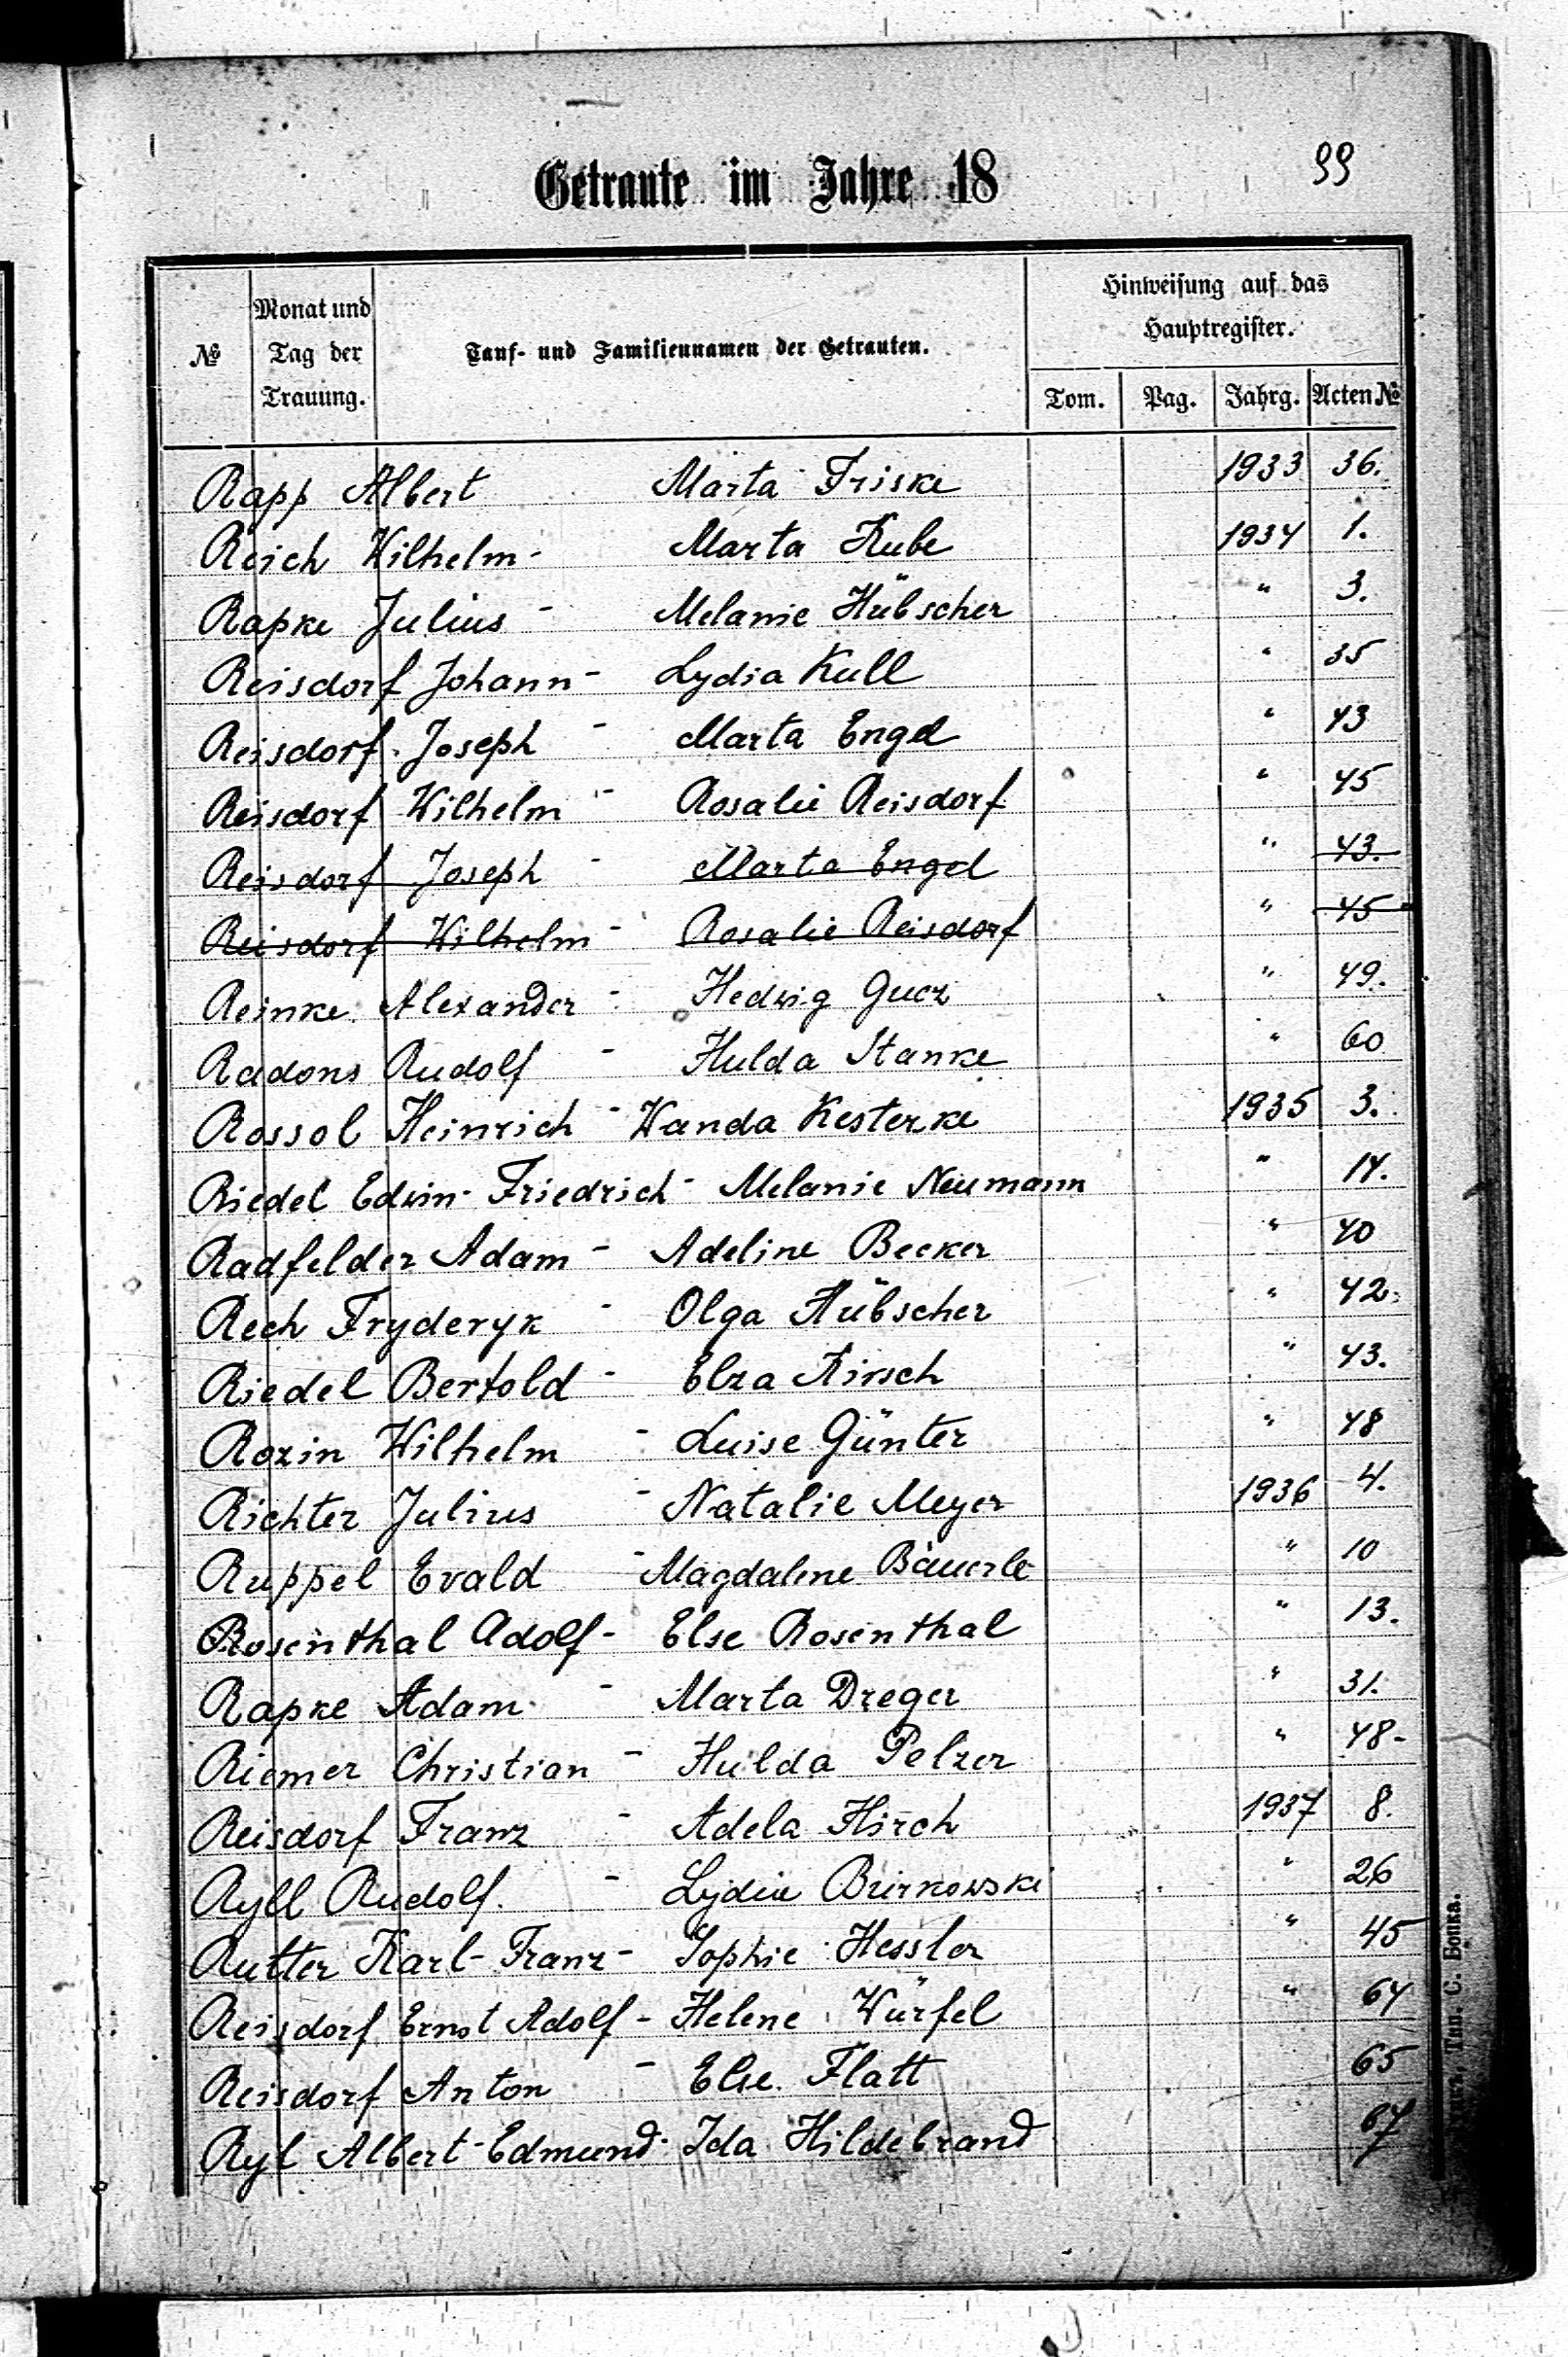 99
Getraute im Jahre 18
№ Monat und Tag der Trauung. Tauf- und Familiennamen der Getrauten. Hinweisung auf das Hauptregister.
Tom. Pag. Jahrg. Acten №
Rapp Albert Marta Friske 1933 36.
Reich Wilhelm - Marta Kube 1934 1.
Rapke Julius - Melanie Hübscher " 3.
Reisdorf Johann - Lydia Kull " 35
Reisdorf Joseph - Marta Engel " 43
Reisdorf Wilhelm - Rosalie Reisdorf " 45
Reisdorf Joseph - Marta Engel " 43.
Reisdorf Wilhelm - Rosalie Reisdorf " 45
Reinke Alexander - Hedwig Gucz " 49.
Radons Rudolf - Hulda Stanke " 60
Rossol Heinrich - Wanda Kesterke 1935 3.
Riedel Edwin-Friedrich - Melanie Neumann " 14.
Radfelder Adam - Adeline Becker " 40
Rech Fryderyk - Olga Hübscher " 42.
Riedel Bertold - Elza Hirsch " 43.
Rozin Wilhelm - Luise Günter " 48
Richter Julius - Natalie Meyer 1936 4.
Ruppel Evald - Magdalene Bäuerle " 10
Rosenthal Adolf - Else Rosenthal " 13.
Rapke Adam - Marta Dreger " 31.
Riemer Christian - Hulda Pelzer " 48-
Reisdorf Franz - Adela Hirch 1937 8.
Ryll Rudolf. - Lydia " 26
Rutter Karl-Franz - Sophie Hessler " 45
Reisdorf Ernst Adolf - Helene Würfel " 64
Reisdorf Anton - Else Flatt 65
Ryl Albert-Edmund - Ida Hildebrand 67
Тип. С. Бонка.